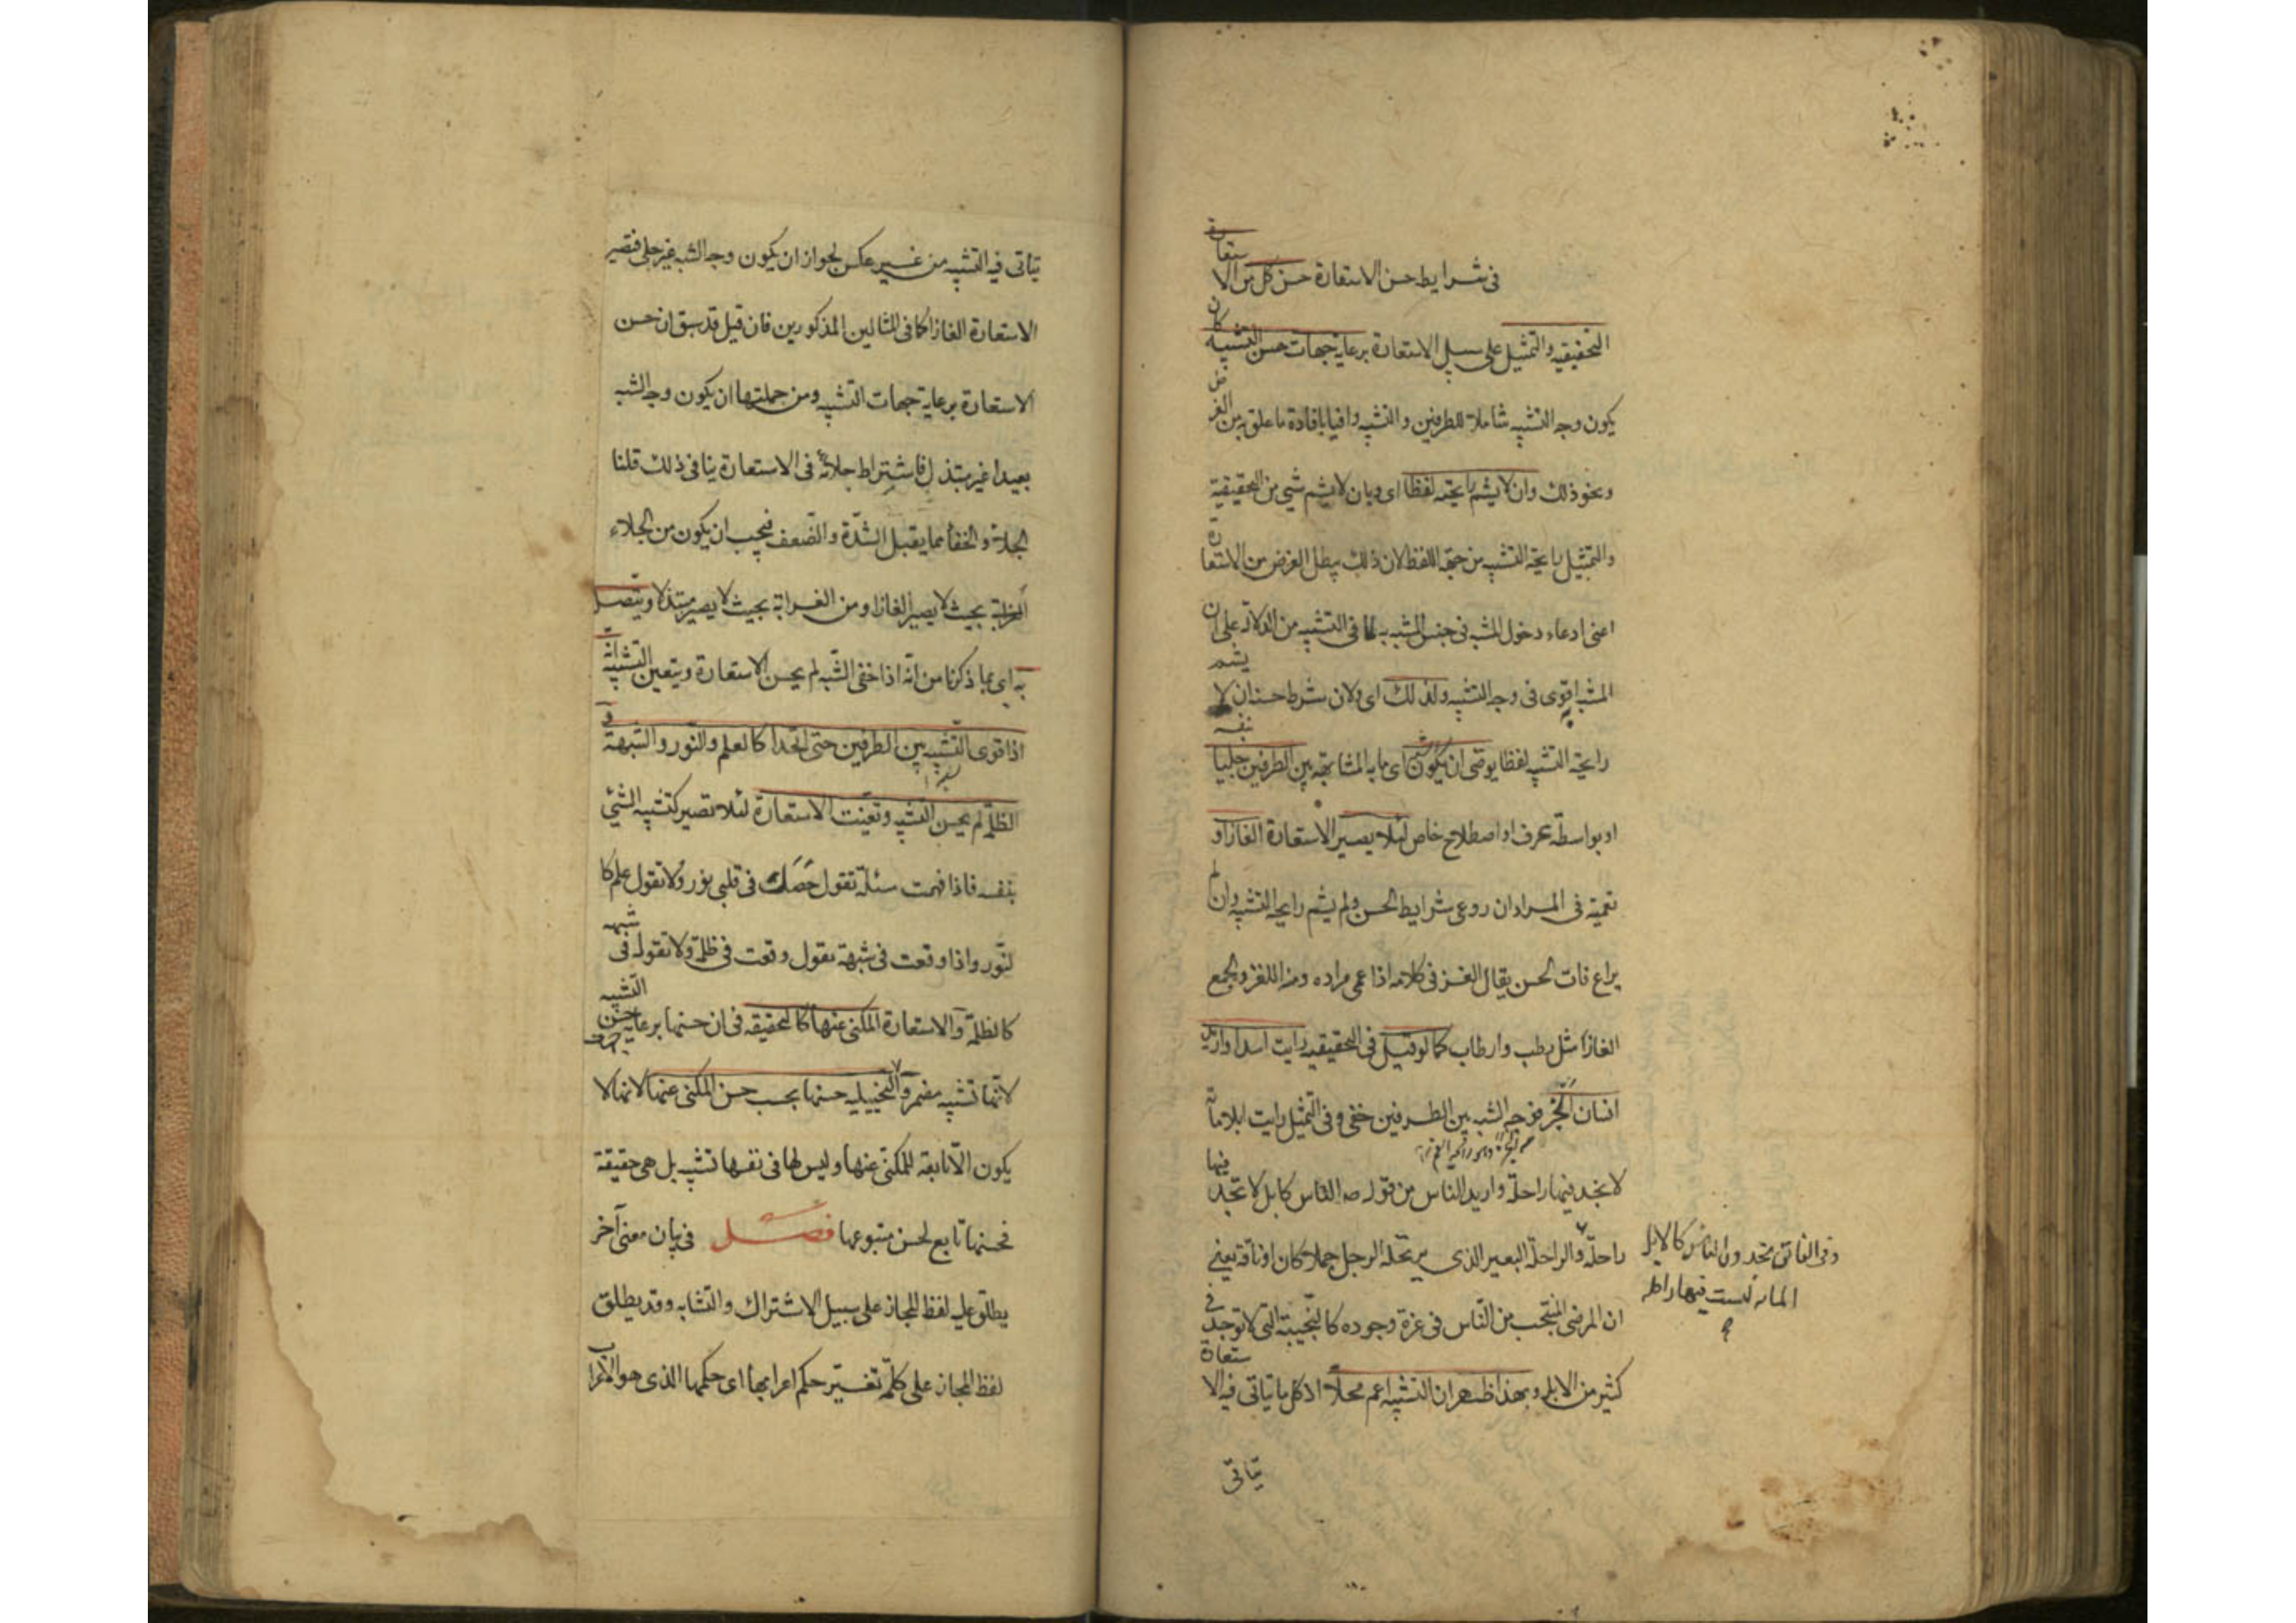 فى شرايط حسن الاستعارة حسن كل من الاستعارة
التحقيقيه والتمثيل على سبيل الاستعارة برعاية جهات حسن التشبيه كان
يكون وجه التشبيه شاملا للطرفين والتشبيه وافيا بافادة ما علق به من الغرض
ونحو ذلك وان لا يشم رايحته لفظا اى وبان لا يشم شئ من التحقيقية
والتمثيل رايحة التشبيه من جهة اللفظ لان ذلك يبطل الغرض من الاستعارة
اعنى ادعاء دخول المشبه فى جنس المشبه به لما فى التشبيه من الدلالة على ان
المشبه به اقوى فى وجه التشبيه ولذلك اى ولان شرط حسنه ان لا يشم
رايحة التشبيه لفظا يوصى ان يكون الشبه اى ما به المشابهة بين الطرفين جليا بنفسه
او بواسطة عرف او اصطلاح خاص لئلا يصير الاستعارة الغازا و
تعمية فى المراد ان روعى شرايط الحسن ولم يشم رايحة التشبيه وان لم
يراع فات الحسن يقال الغز فى كلامه اذا عمى مراده ومنه اللغز والجمع
الغاز مثل رطب وارطاب كما لو قيل فى التحقيقيه رايت اسدا واريد
انسان ابخر فوجه الشبه بين الطرفين خفى وفى التمثيل رايت ابلا مائة
لا تجد فيها راحلة واريد الناس من قوله صم الناس كابل لا تجد فيها
راحلة والراحلة البعير الذى يرتحله الرجل جملا كان او ناقة يعنى
ان المرضى المنتجب من الناس فى عزة وجوده كالنجيبة التى لا توجد فى
كثير من الابل وبهذا ظهر ان التشبيه اعم محلا اذ كل ما يتاتى فيه الاستعارة
يتاتى
وفى الفائق تجدون الناس كالابل
المائه ليست فيها راحله
يتاتى فيه التشبيه من غير عكس لجواز ان يكون وجه الشبه غير جلى فتصير
الاستعارة الغازا كما فى المثالين المذكورين فان قيل قد سبق ان حسن
الاستعارة برعاية جهات التشبيه ومن جملتها ان يكون وجه الشبه
بعيدا غير مبتذل فاشتراط جلائه فى الاستعارة ينافى ذلك قلنا
الجلاء والخفاء مما يقبل الشدة والضعف فيجب ان يكون من الجلاء
بحيث لا يصير الغازا ومن الغرابة بحيث لا يصير مبتذلا ويتصل
به اى بما ذكرنا من انه اذا خفى الشبه لم يحسن الاستعارة ويتعين التشبيه انه
اذا قوى الشبه بين الطرفين حتى اتحدا كالعلم والنور والشبهة و
الظلمة لم يحسن التشبيه وتعينت الاستعارة لئلا تصير كتشبيه الشئ
بنفسه فاذا فهمت مسئلة تقول حصل فى قلبى نور ولا تقول علم كا
لنور واذا وقعت فى شبهة تقول وقعت فى ظلمة ولا تقول فى شبهه
كالظلمة والاستعارة المكنى عنها كالتحقيقه فى ان حسنها برعاية جهات حسن التشبيه
لانها تشبيه مضمر والتخييليه حسنها بحسب حسن المكنى عنها لانها لا
يكون الا تابعة للمكنى عنها وليس لها فى نفسها تشبيه بل هى حقيقة
فحسنها تابع لحسن متبوعها فصل فى بيان معنى آخر
يطلق عليه لفظ المجاز على سبيل الاشتراك والتشابه وقد يطلق
لفظ المجاز على كلمة تغير حكم اعرابها اى حكمها الذى هو الاعراب